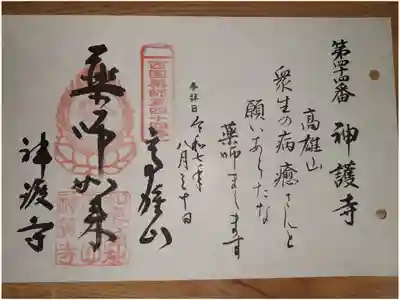 第四十四番 神護寺
高雄山
衆生の病癒さんと
願いあらたな
薬師まします
参拝日 令和七年
八月三十日
西国薬師第四十四番
高雄山
薬師如来
神護寺